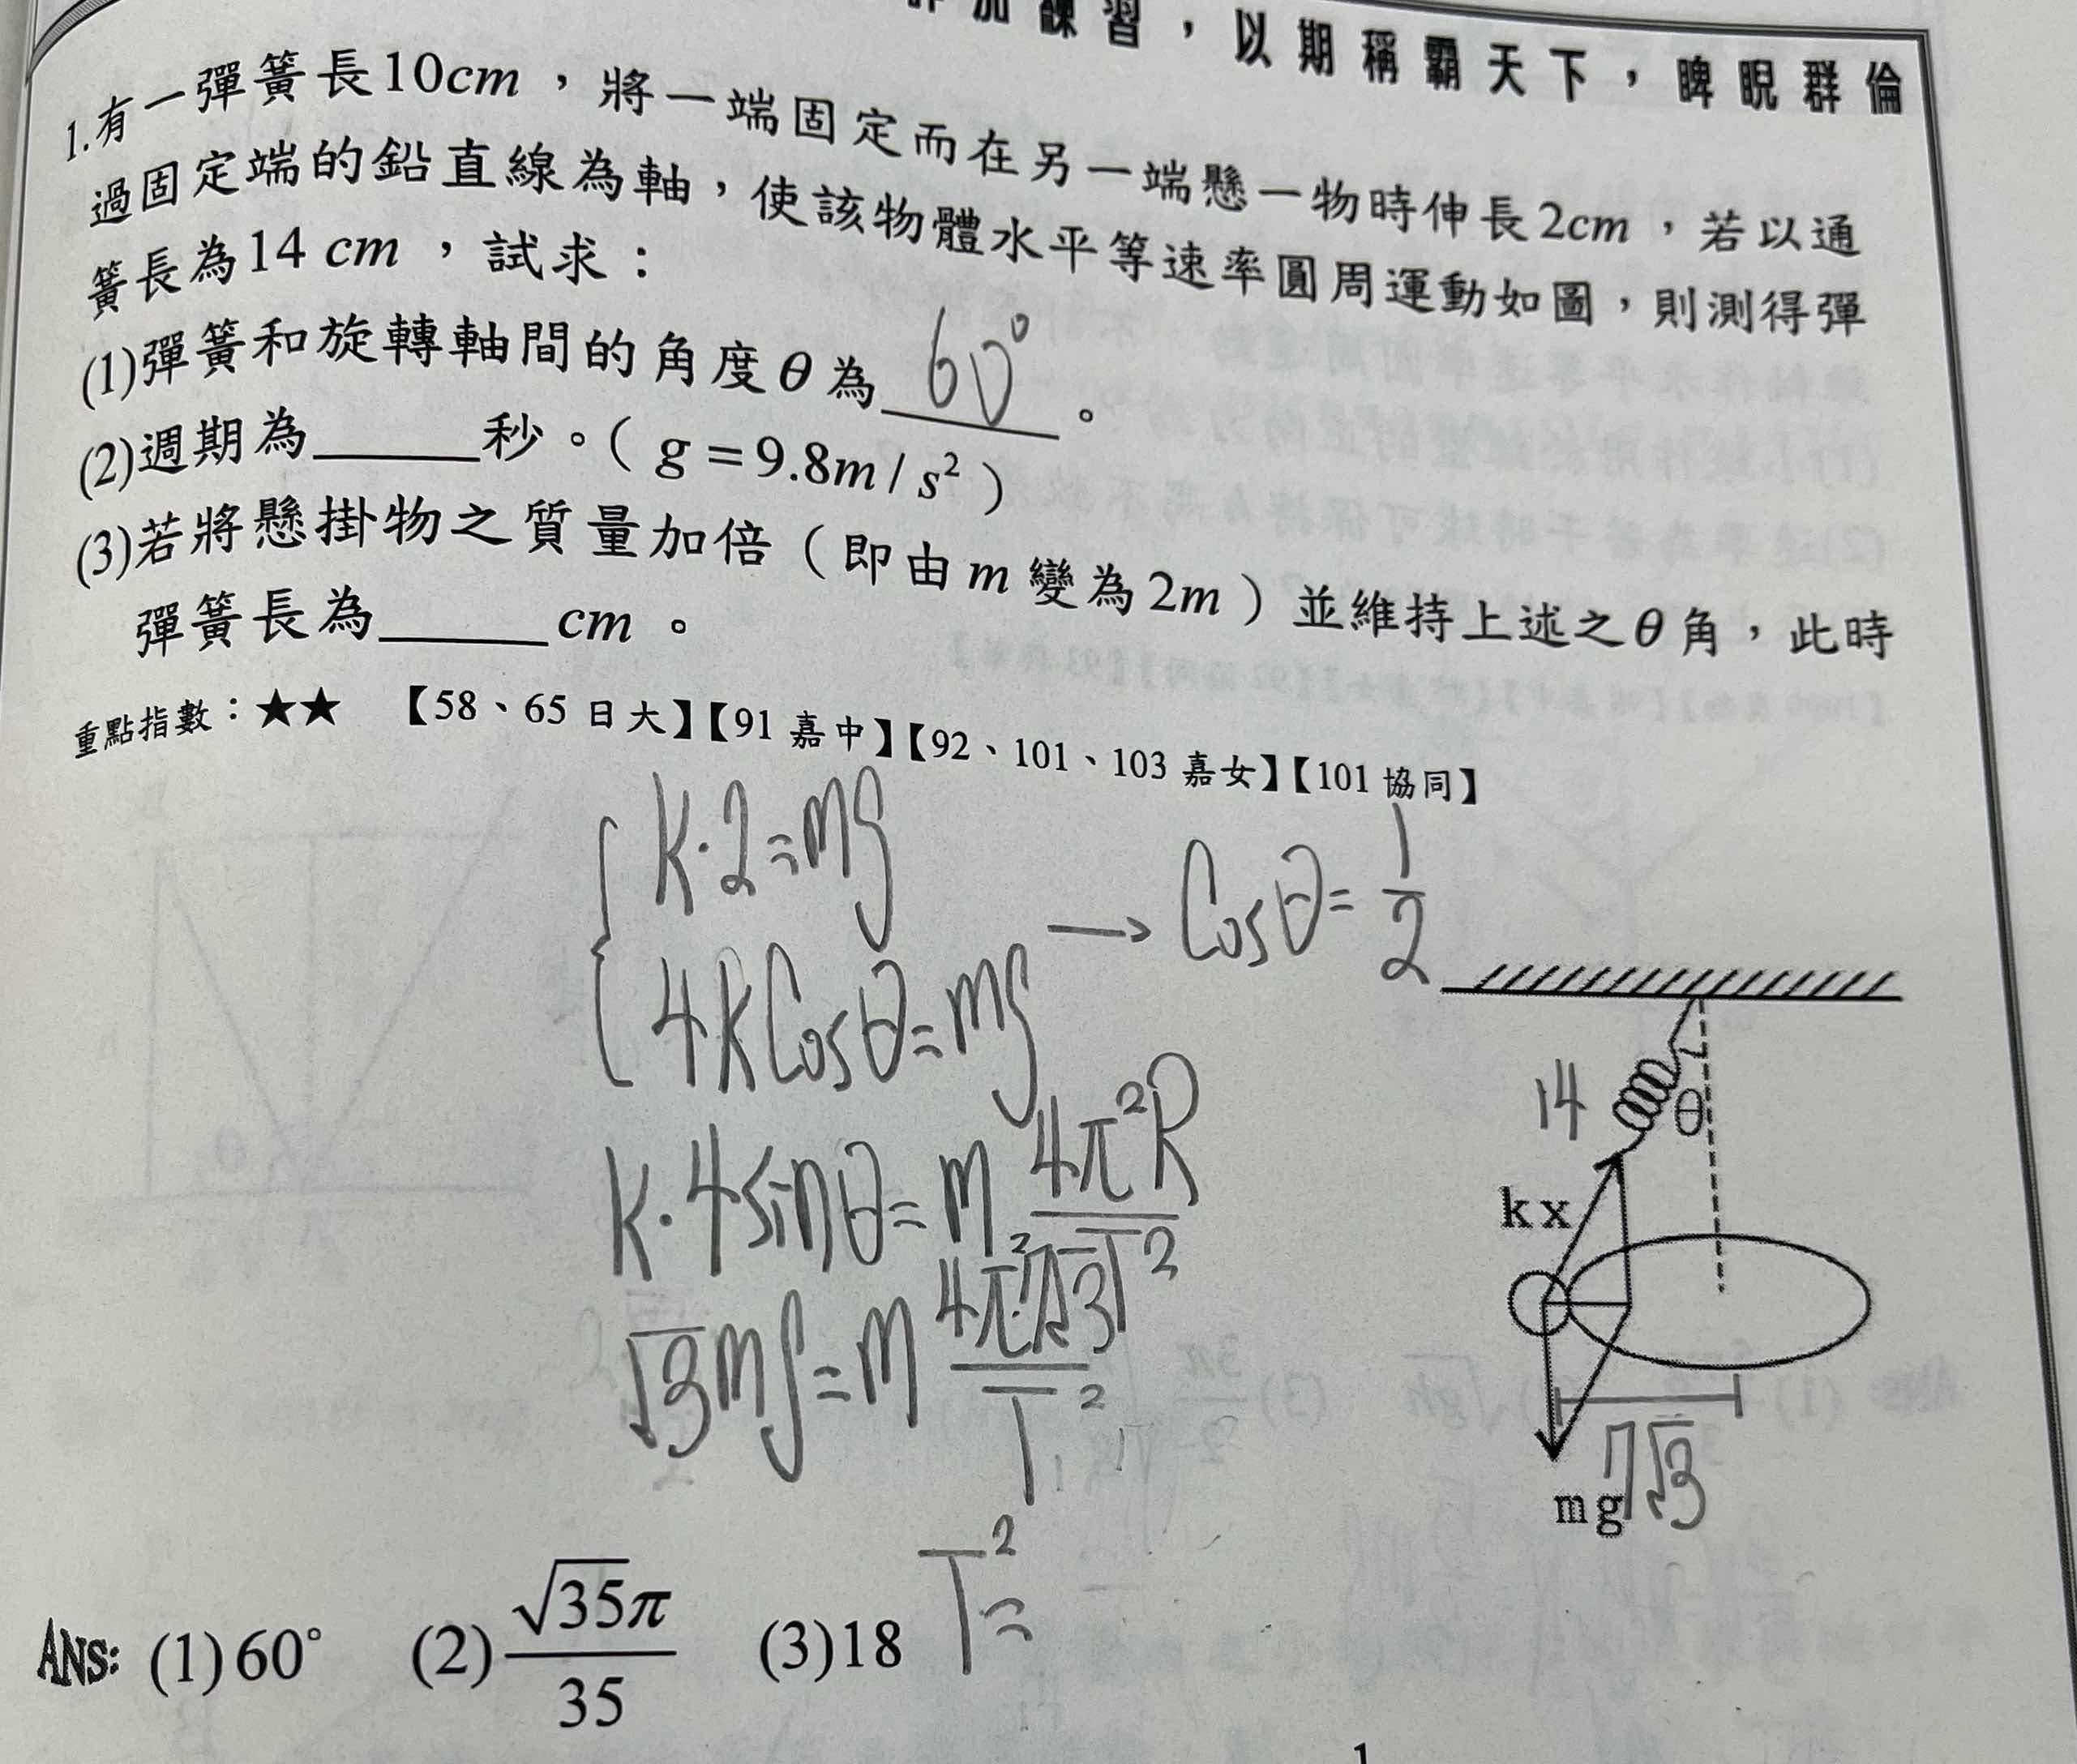 加練習，以期稱霸天下，睥睨群倫
1.有一彈簧長10cm，將一端固定而在另一端懸一物時伸長2cm，若以通
過固定端的鉛直線為軸，使該物體水平等速率圓周運動如圖，則測得彈
簧長為14 cm，試求：
(1)彈簧和旋轉軸間的角度θ為 60° 。
(2)週期為______秒。( g = 9.8m / s² )
(3)若將懸掛物之質量加倍（即由m變為2m）並維持上述之θ角，此時
彈簧長為______cm。
重點指數：★★ 【58、65 日大】【91 嘉中】【92、101、103 嘉女】【101 協同】
{ K·2=mg
4KCosθ=mg
→ Cosθ= 1/2
K·4sinθ=m 4π²R/T²
√3mg=m 4π²7√3/T²
T²=
14
θ
kx
mg
7√3
ANS: (1)60° (2) √35π/35 (3)18
1